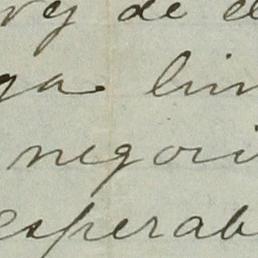 ry de el
ga lin
negoci
esperab